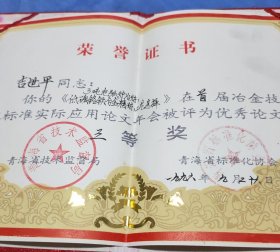 荣誉证书
吉世平同志：
你的《在首届冶金技
标准实际应用论文年会被评为优秀论文
三等奖
青海省技术监督局
青海省标准化协会
一九九六年九月廿八日